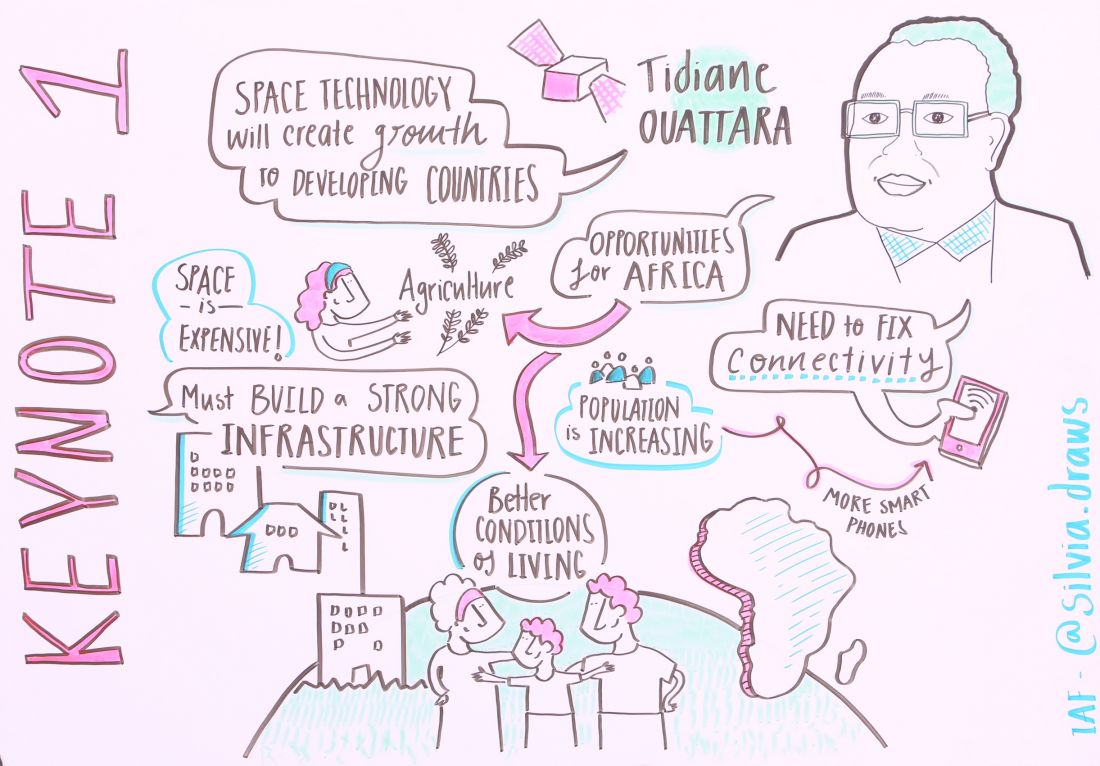 KEYNOTE 1
SPACE TECHNOLOGY
will create growth
to DEVELOPING COUNTRIES
Tidiane
OUATTARA
OPPORTUNITIES
for AFRICA
Agriculture
SPACE
- is -
EXPENSIVE!
NEED to FIX
Connectivity
Must BUILD a STRONG
INFRASTRUCTURE
POPULATION
is INCREASING
MORE SMART
PHONES
Better
CONDITIONS
of LIVING
IAF - @silvia.draws